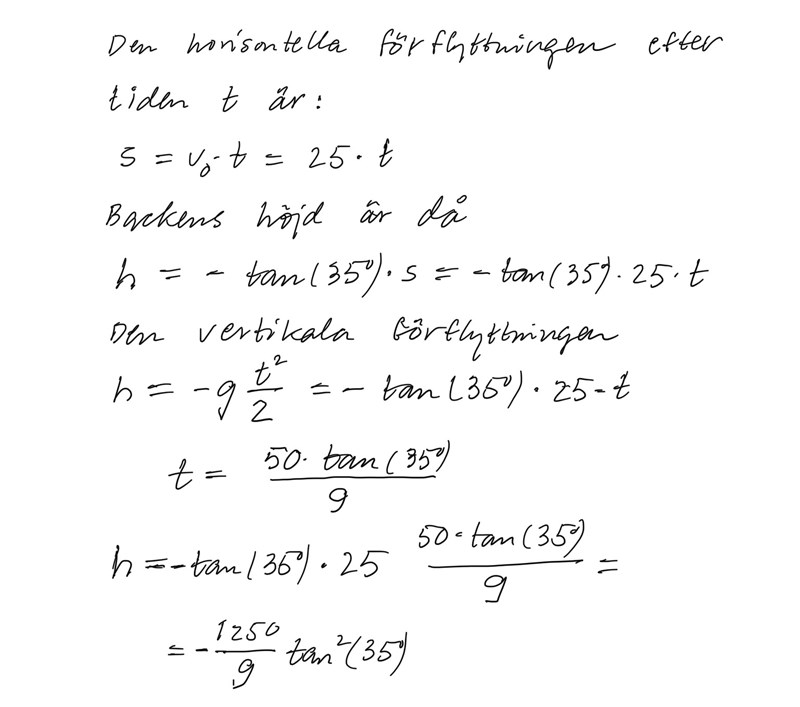 Den horisontella förflyttningen efter
tiden t är:
s = v₀·t = 25·t
Backens höjd är då
h = - tan(35°)·s = - tan(35°)·25·t
Den vertikala förflyttningen
h = -g t²/2 = - tan(35°)·25·t
t = 50·tan(35°)/g
h = -tan(35°)·25 50·tan(35°)/g =
= - 1250/g tan²(35°)